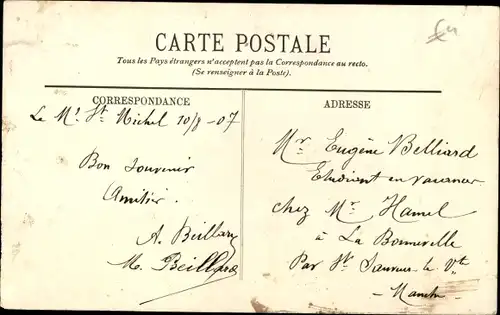 CARTE POSTALE
Tous les Pays étrangers n'acceptent pas la Correspondance au recto.
(Se renseigner à la Poste).
CORRESPONDANCE
Le Mt St Michel 10/8-07
Bon souvenir
Amitier.
A. Beillard
M. Beillard
ADRESSE
Mr Eugène Belliard
Etudiant en vacances
chez Mr. Hamel
à La Bonneville
Par St Sauveur le Vte
- Manche